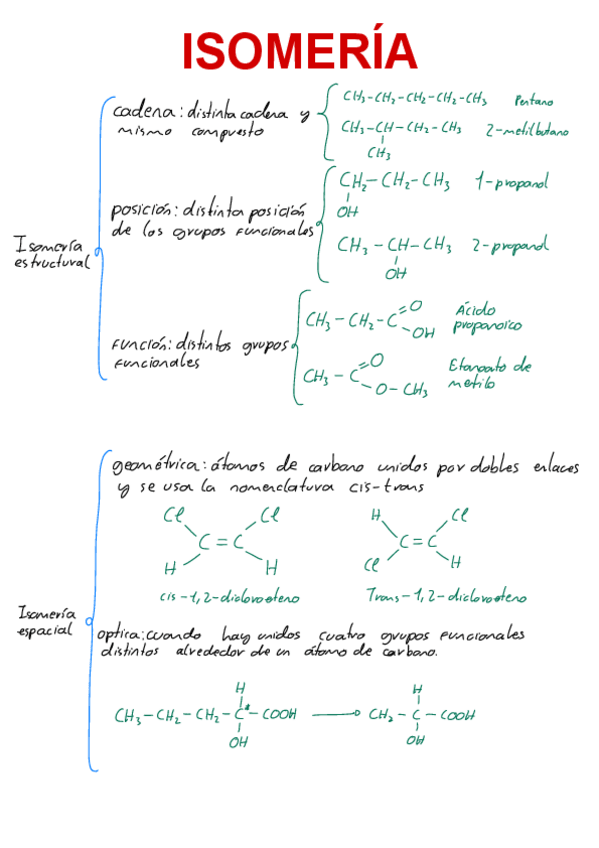 ISOMERÍA
Isomería
estructural
cadena: distinta cadena y
mismo compuesto
CH3-CH2-CH2-CH2-CH3 Pentano
CH3-CH-CH2-CH3 2-metilbutano
CH3
posición: distinta posición
de los grupos funcionales
CH2-CH2-CH3 1-propanol
OH
CH3-CH-CH3 2-propanol
OH
función: distintos grupos
funcionales
CH3-CH2-C=O Ácido
-OH propanoico
CH3-C=O Etanoato de
-O-CH3 metilo
Isomería
espacial
geométrica: átomos de carbono unidos por dobles enlaces
y se usa la nomenclatura cis-trans
Cl Cl H Cl
C=C C=C
H H Cl H
cis-1,2-dicloroeteno Trans-1,2-dicloroeteno
optica: cuando hay unidos cuatro grupos funcionales
distintos alrededor de un átomo de carbono.
H H
CH3-CH2-CH2-C*-COOH → CH2-C-COOH
OH OH